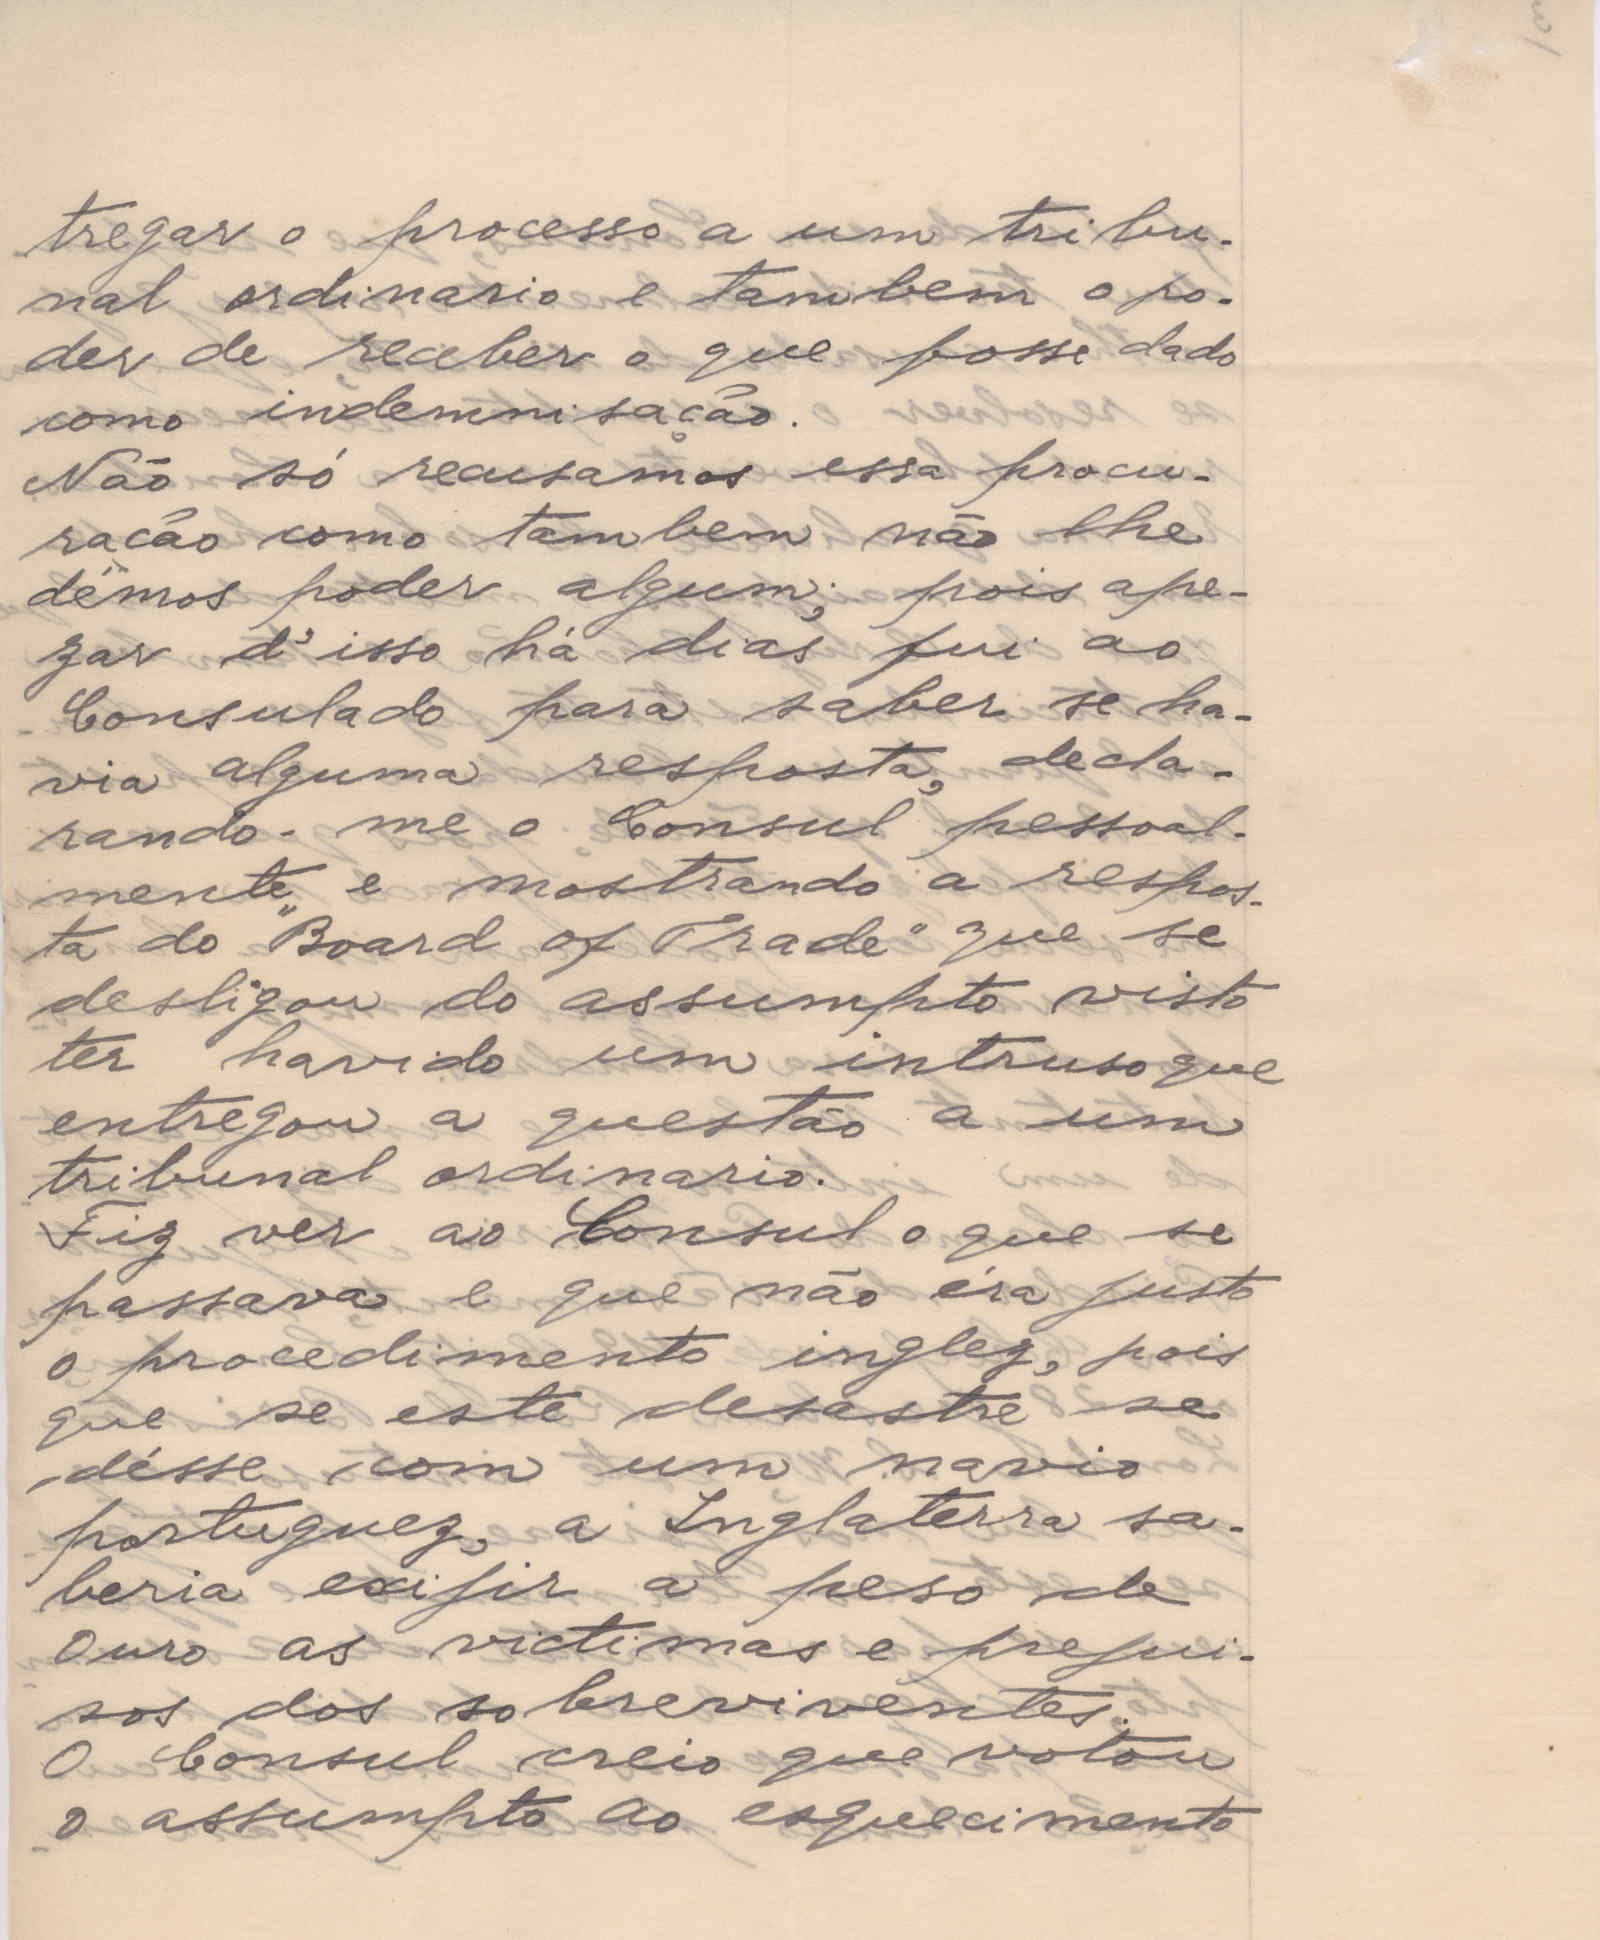 3
tregar o processo a um tribu-
nal ordinario e tambem o po-
der de receber o que fosse dado
como indemnisação.
Não só recusamos essa procu-
ração como tambem não lhe
démos poder algum; pois ape-
zar d'isso há dias fui ao
Consulado para saber se ha-
via alguma resposta, decla-
rando-me o Consul pessoal-
mente, e mostrando a respos-
ta do "Board of Trade" que se
desligou do assumpto visto
ter havido um intruso que
entregou a questão a um
tribunal ordinario.
Fiz ver ao Consul o que se
passava e que não éra justo
o procedimento inglez, pois
que se este desastre se
désse com um navio
portuguez, a Inglaterra sa-
beria exijir a peso de
ouro as victimas e prejui-
sos dos sobreviventes.
O Consul creio que votou
o assumpto ao esquecimento